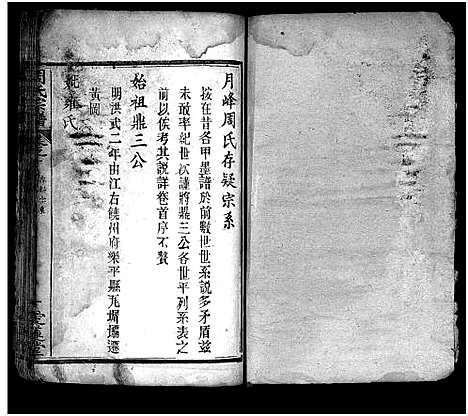 月峰周氏存疑宗系
按在昔各甲墨譜於前數世世系說多矛盾兹
未敢率紀世次謹將鼎三公各世平列系表之
前以俟考其說詳卷首序不贅
始祖鼎三公
明洪武二年由江右饒州府樂平縣瓦屑壩遷
黃岡
氏
周氏宗譜